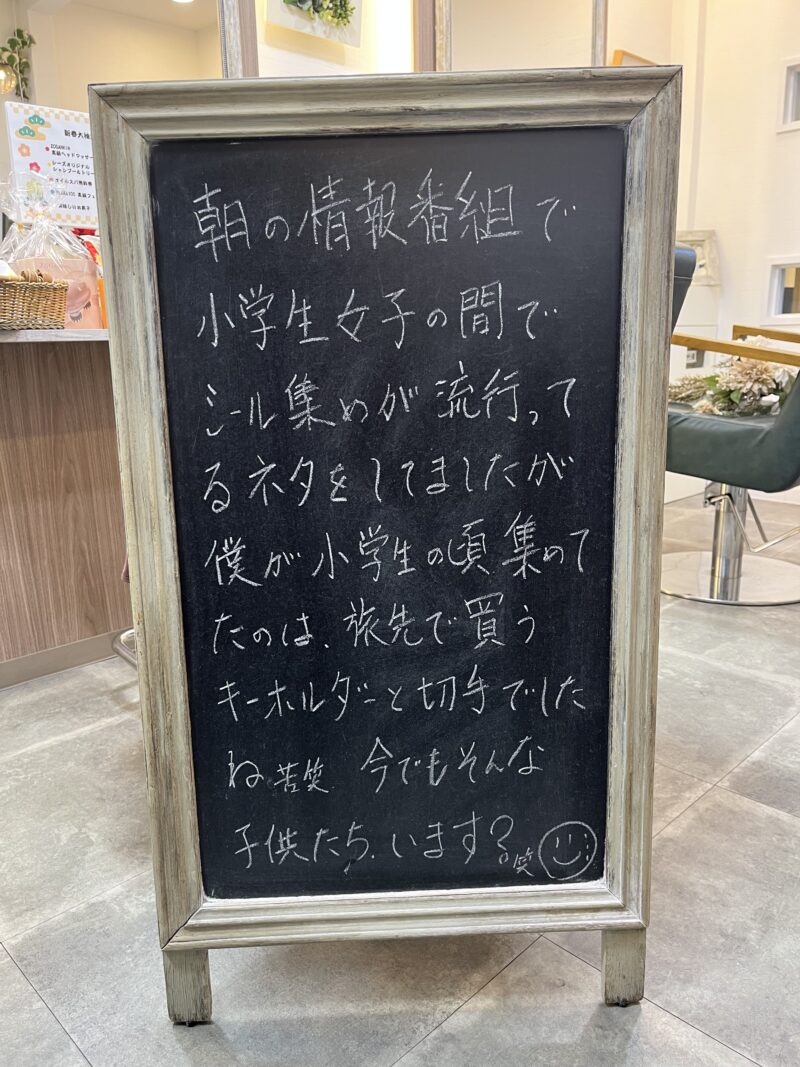 朝の情報番組で
小学生女子の間で
シール集めが流行って
るネタをしてましたが
僕が小学生の頃集めて
たのは、旅先で買う
キーホルダーと切手でした
ね苦笑 今でもそんな
子供たち、います？笑
新春大
高級ヘッドマッサー
シーズオリジナル